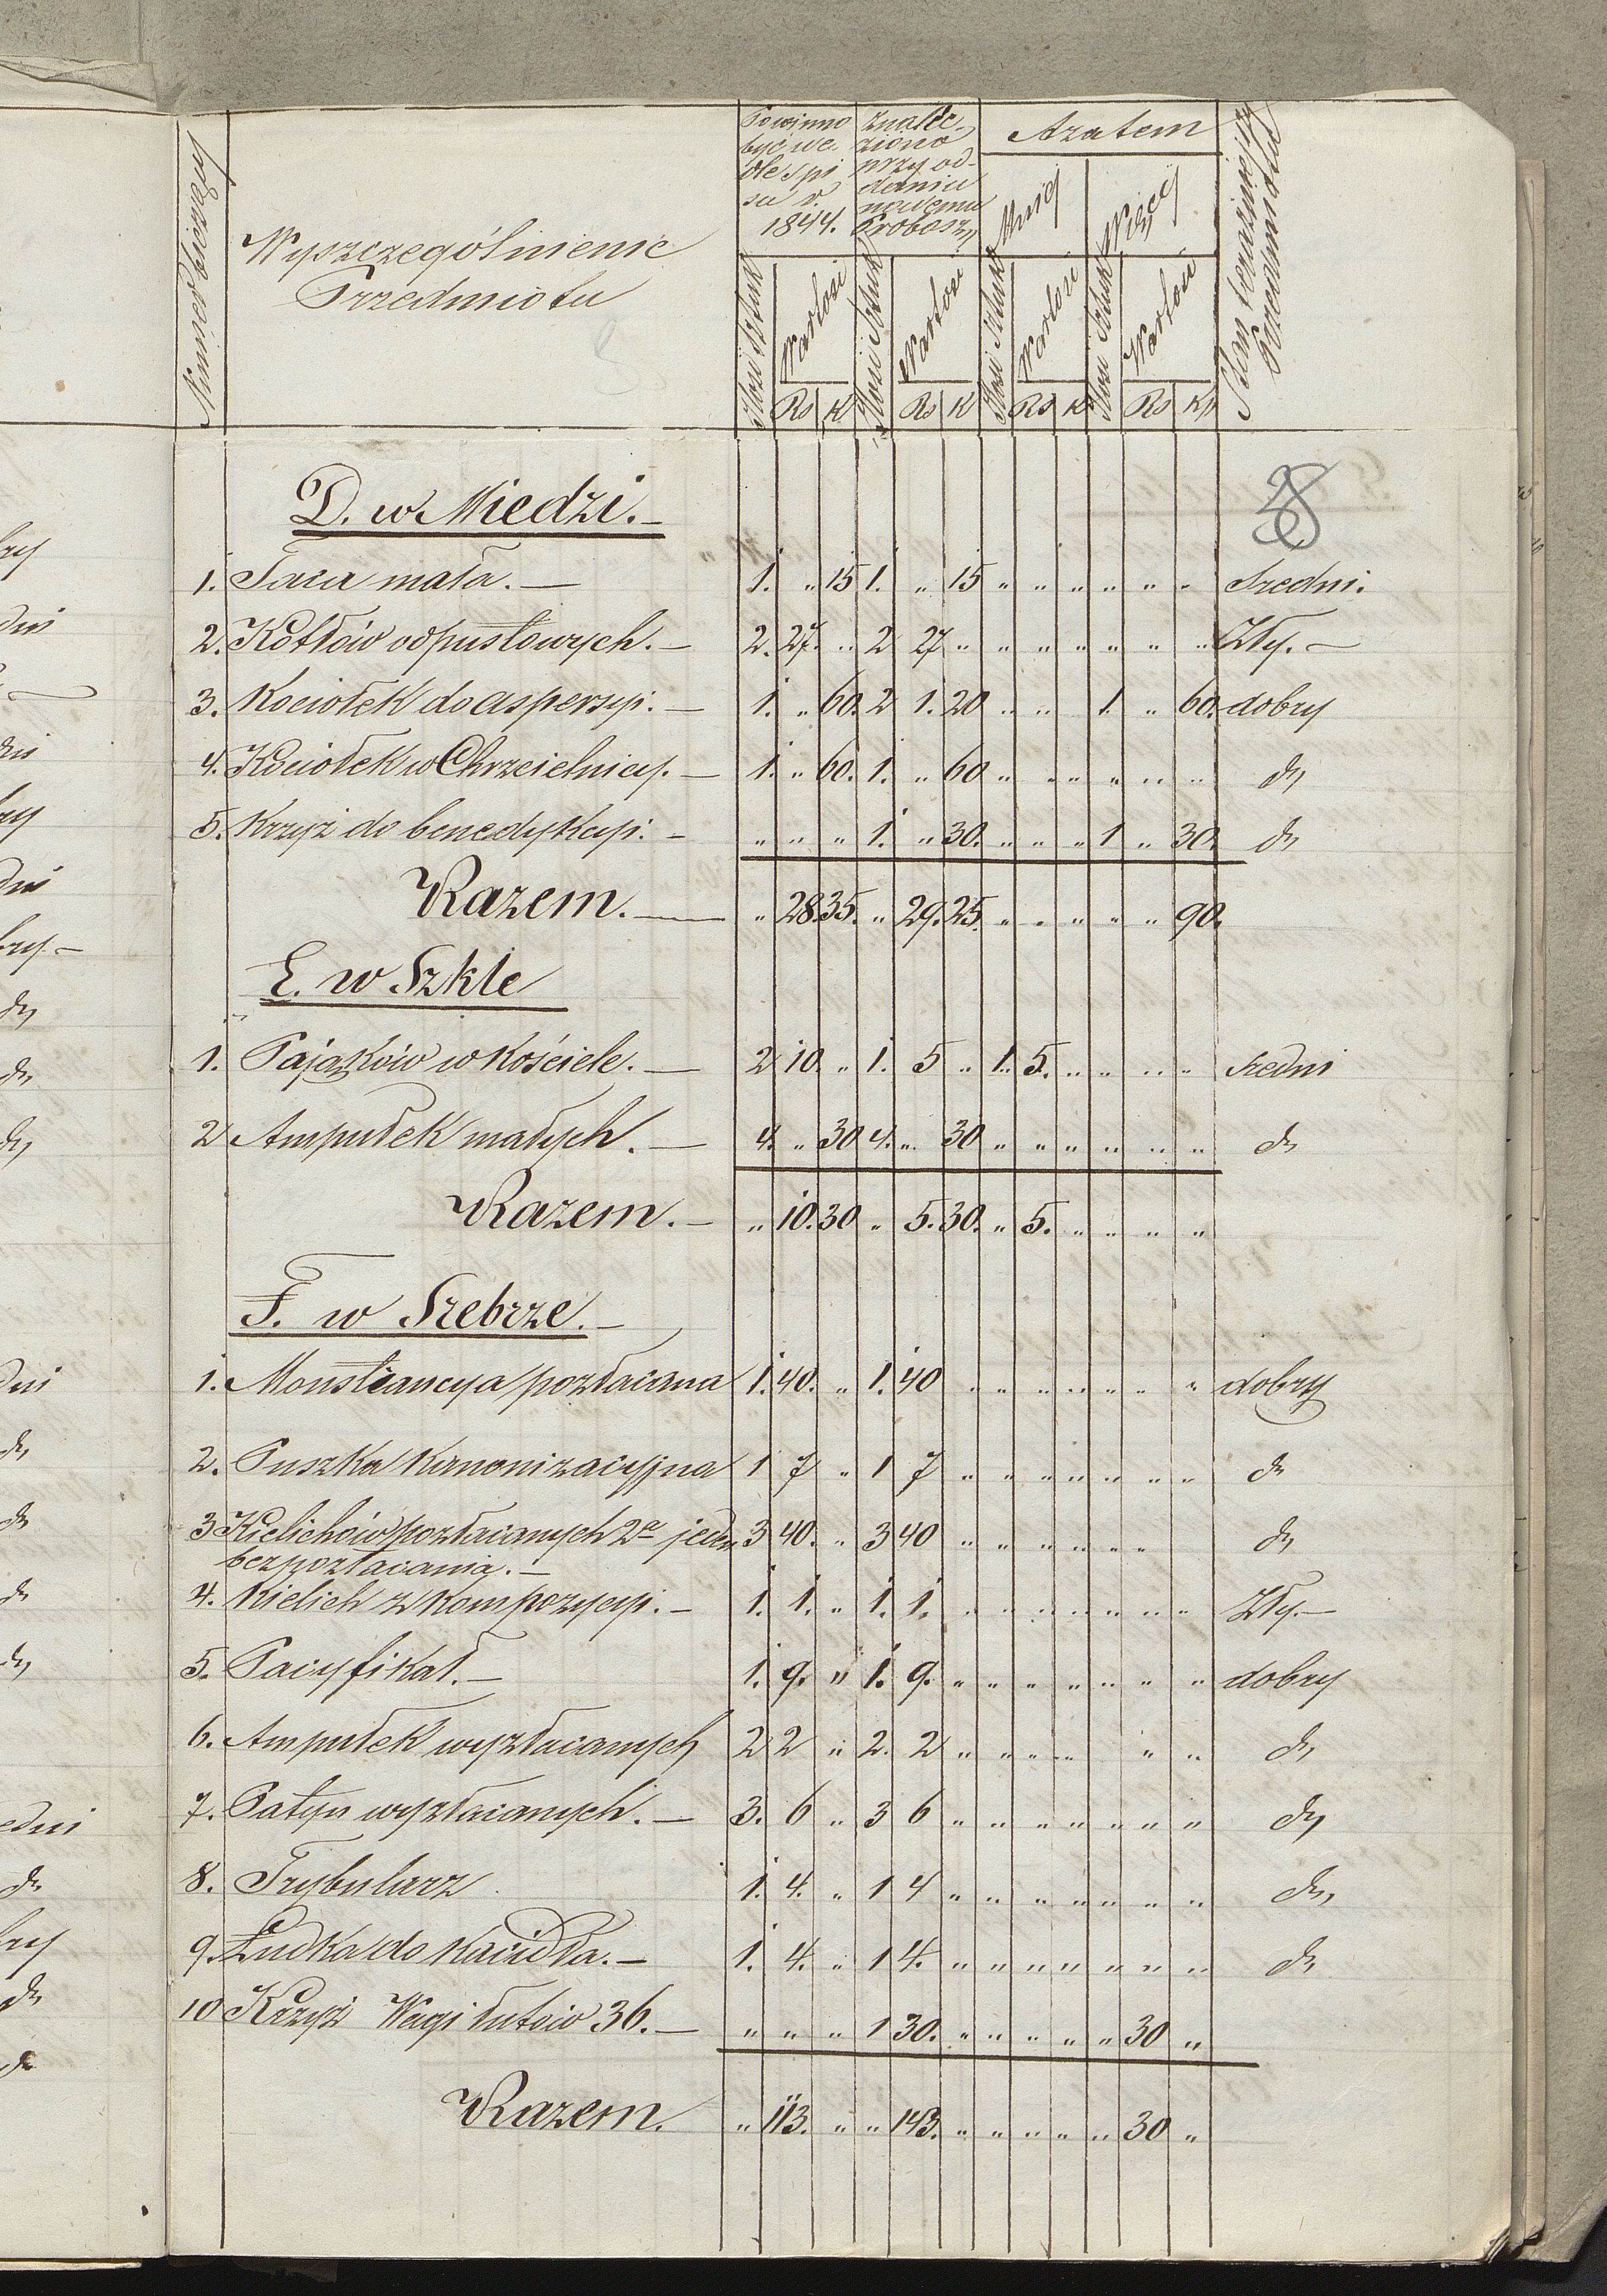 Numer porządkowy
Wyszczególnienie
Przedmiotu
Powinno
być we-
dle spi
su r.
1844.
Znale-
ziono
przy od-
daniu
nowemu
Probosz.
Azatem
Mniej
Więcej
Stan terazniejszy
Przedmiotu
Ilość Sztuk
Wartość
Ilość Sztuk
Wartość
Ilość Sztuk
Wartość
Ilość Sztuk
Wartość
Rs K Rs K Rs K Rs Kp
D. w Miedzi.—
28
1. Taca mała.— 1. " 15 1. " 15 " " " " " " Średni.
2. Kotłów odpustowych.— 2. 27. " 2 27 " " " " " " " Zły.—
3. Kociołek do aspersyi.— 1. " 60. 2 1. 20 " " 1. " 60. dobry
4. Kociołek w Chrzcielnicy.— 1. " 60. 1. " 60 " " " " " " do
5. Krzyż do benedykcyi.— " " " 1. " 30. " " " 1 " 30. do
Razem.— " 28. 35. " 29. 25. " " " " " 90.
E. w Szkle
1. Pająków w Kościele.— 2 10. " 1. 5 " 1. 5. " " " " średni
2 Ampułek małych.— 4. " 30 4. " 30 " " " " " " do
Razem.— " 10. 30 " 5. 30. " 5. " " " "
F. w Srebrze.—
1. Monstrancya pozłacana 1. 40. " 1. 40 " " " " " " " dobry
2. Puszka kanonizacyjna 1 7 " 1 7 " " " " " " " do
3 Kielichów pozłacanych 2a jeden 3 40. " 3 40 " " " " " " do
bez pozłacania.—
4. Kielich z kompozycyi.— 1. 1. " 1. 1. " " " " " " " Zły.—
5. Pacyfikał.— 1. 9. " 1. 9. " " " " " " " dobry
6. Ampułek wyzłacanych 2 2 " 2. 2 " " " " " " do
7. Patyn wyzłacanych.— 3. 6 " 3 6 " " " " " " " do
8. Trybularz 1. 4. " 1 4 " " " " " " " do
9. Łudka do kadzidła.— 1. 4. " 1 4. " " " " " " " do
10 Krzyż Wagi łutów 36.— " " " 1 30. " " " " " 30 "
Razem. " 113. " " 143. " " " " " 30 "